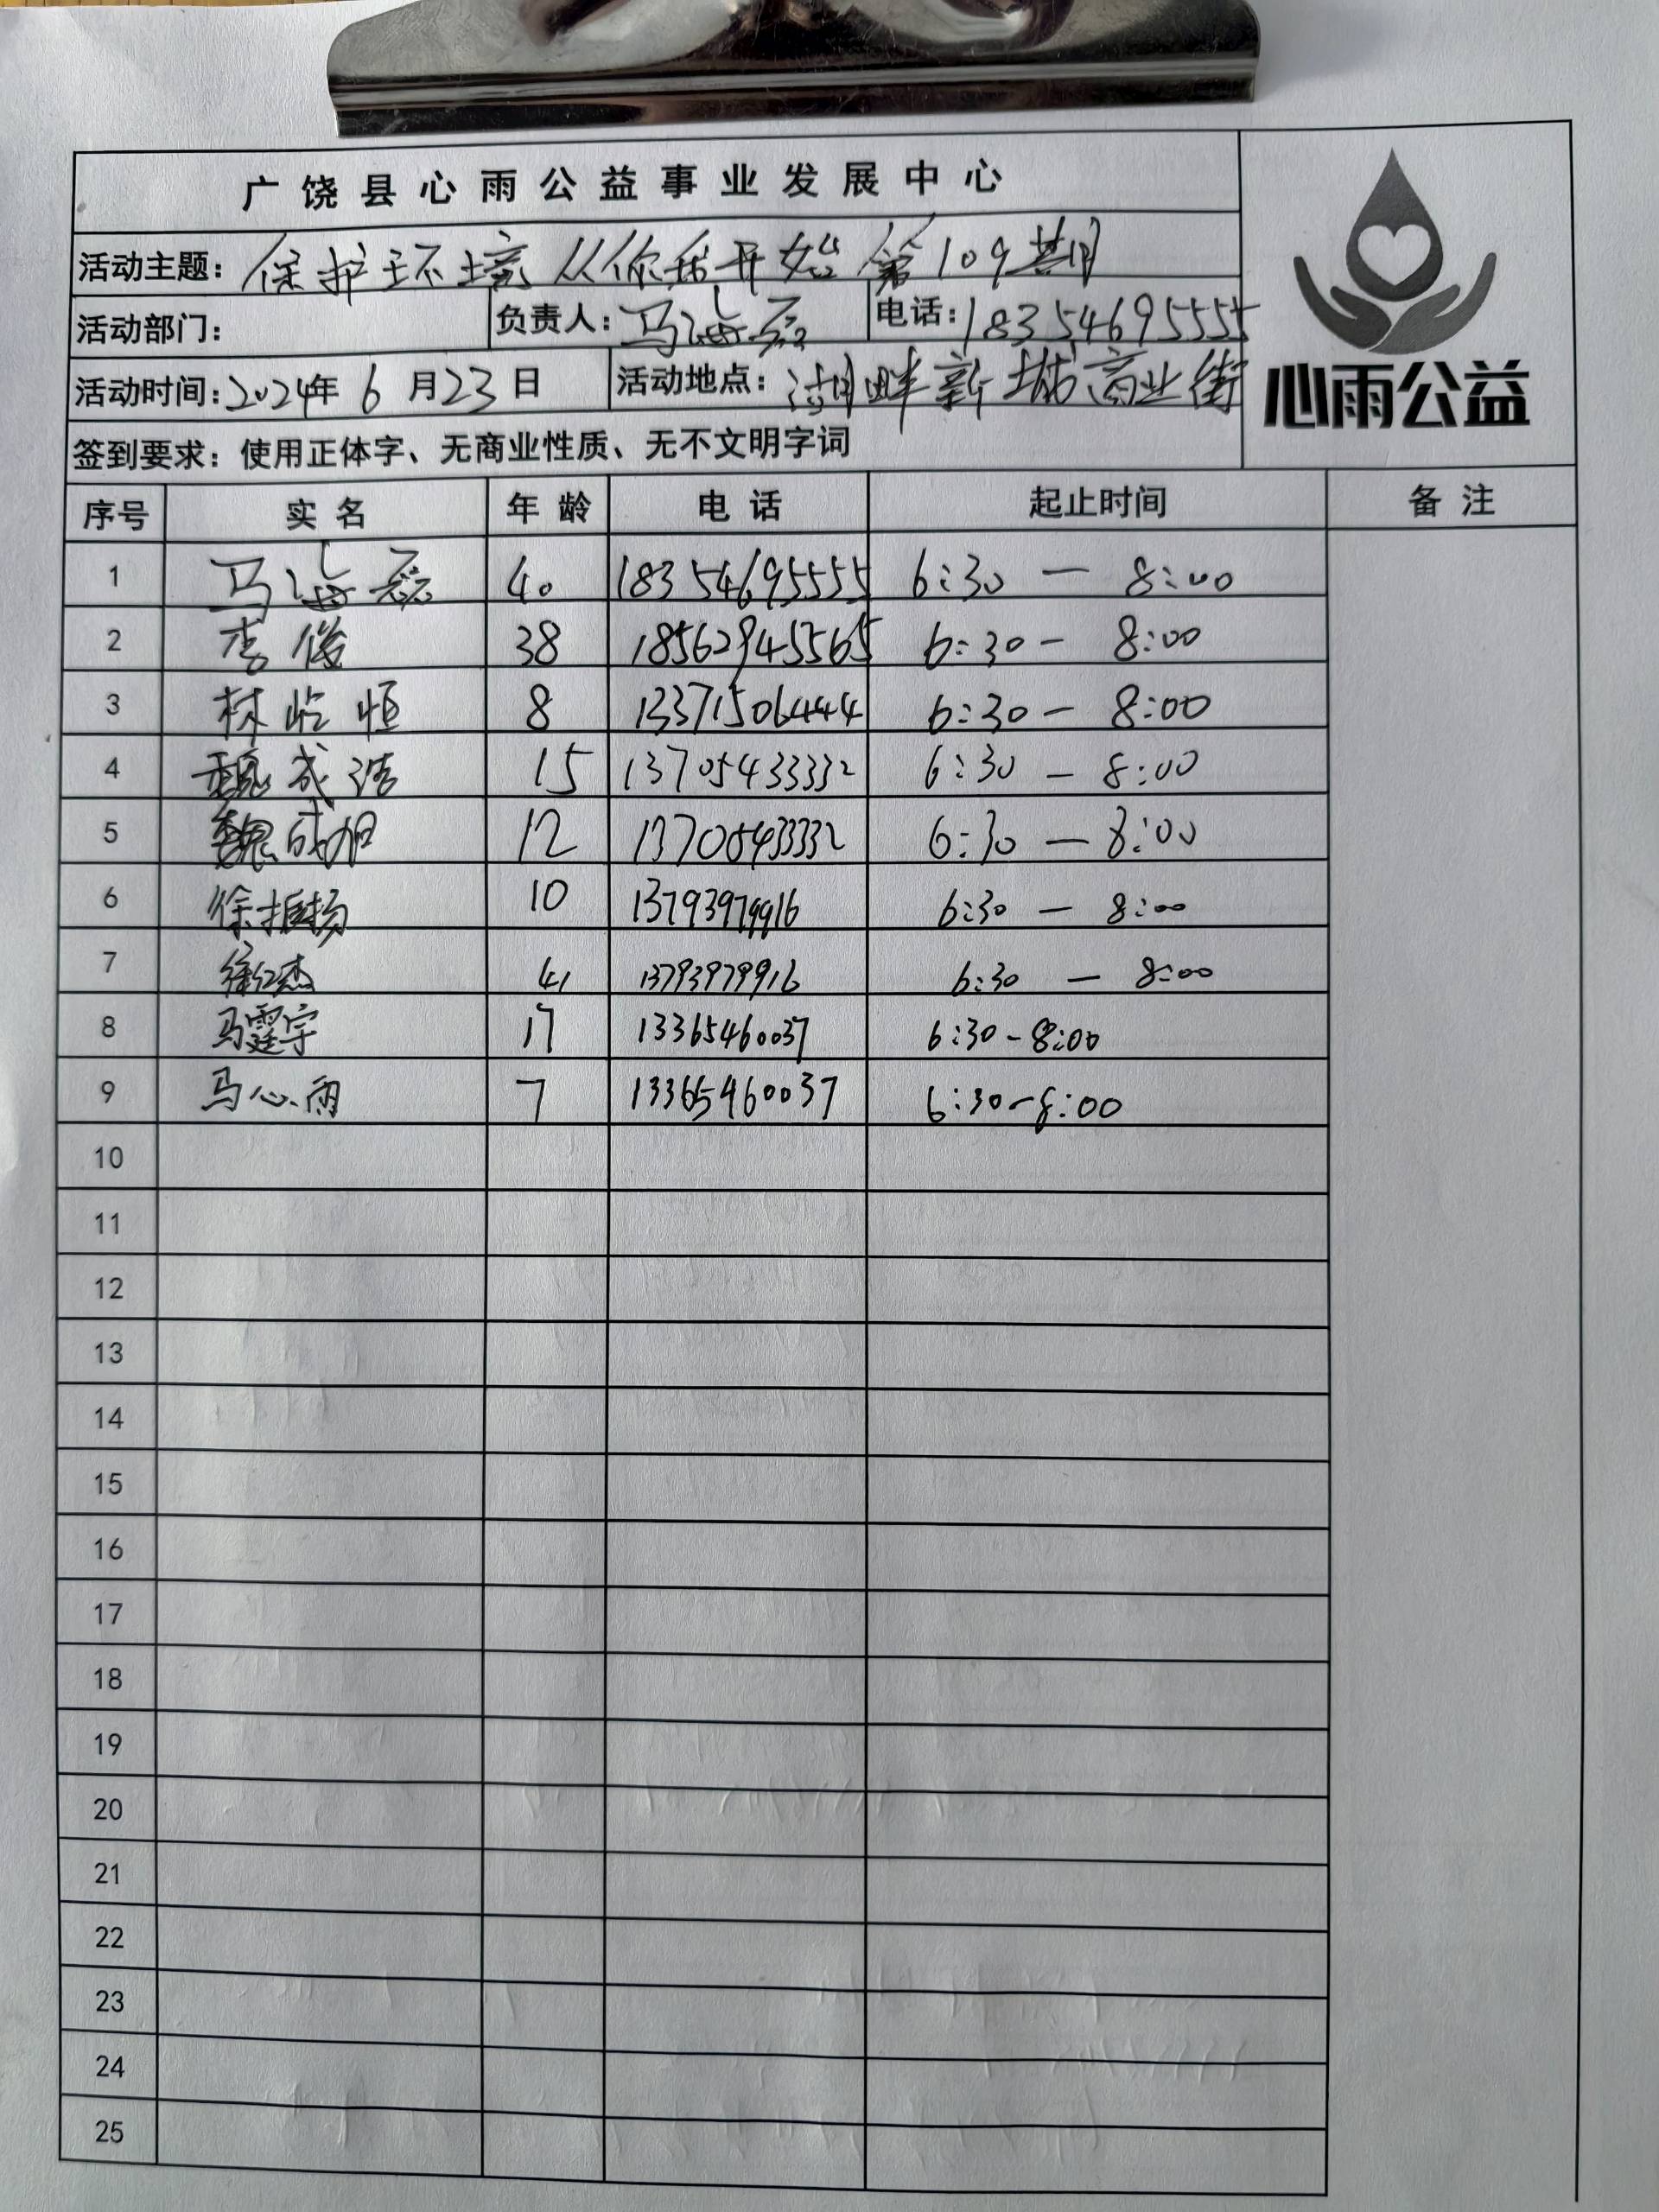 广饶县心雨公益事业发展中心
活动主题：保护环境从你我开始第109期
活动部门： 负责人：马海磊 电话：18354695555
活动时间：2024年6月23日 活动地点：湖畔新城商业街
心雨公益
签到要求：使用正体字、无商业性质、无不文明字词
序号 实名 年龄 电话 起止时间 备注
1 马海磊 40 18354695555 6:30 — 8:00
2 李俊 38 18562945565 6:30 - 8:00
3 林临恒 8 13371506444 6:30 - 8:00
4 魏成浩 15 13705433332 6:30 - 8:00
5 魏成旭 12 13705433332 6:30 — 8:00
6 徐振扬 10 13793979916 6:30 — 8:00
7 徐红杰 41 13793979916 6:30 — 8:00
8 马霆宇 17 13365460037 6:30-8:00
9 马心雨 7 13365460037 6:30-8:00
10
11
12
13
14
15
16
17
18
19
20
21
22
23
24
25